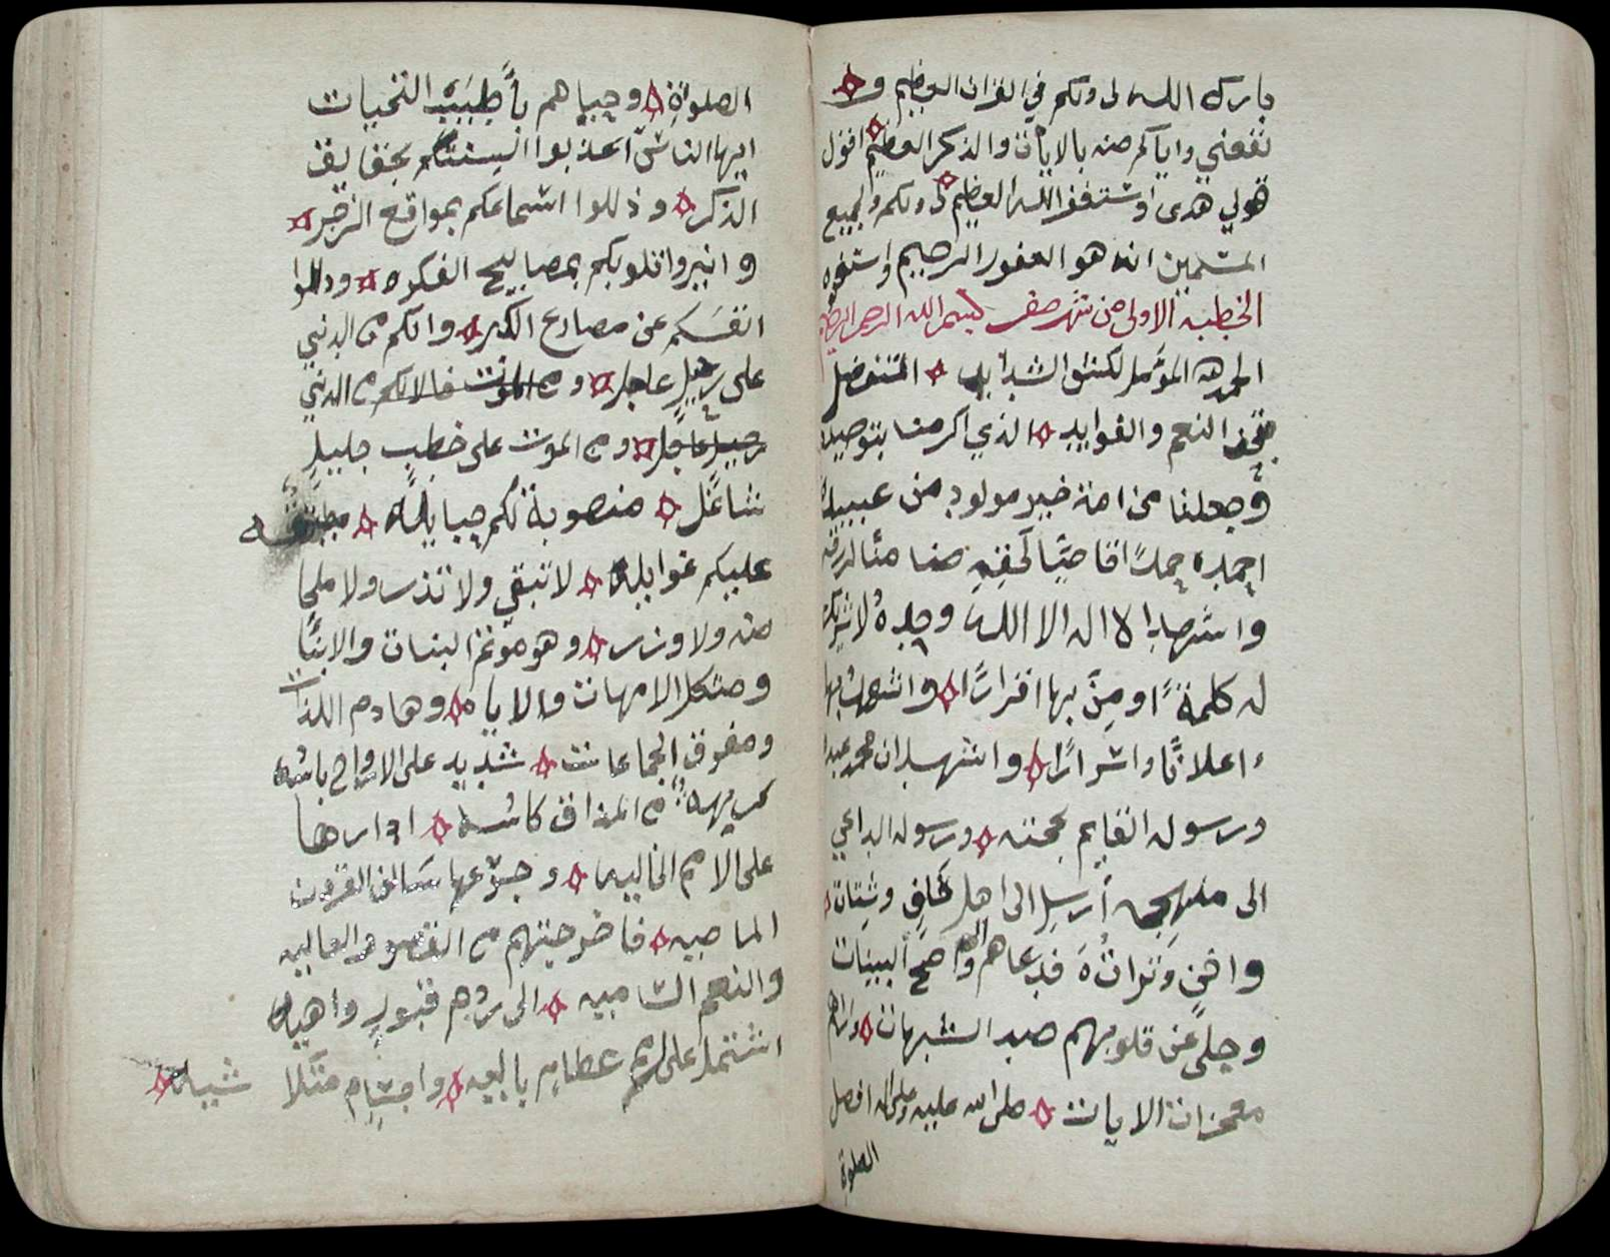 بارك الله لي ولكم في القران العظيم و
نفعني واياكم منه بالايات والذكر العظيم اقول
قولي هذى واستغفر الله العظيم لي ولكم ولجميع
المسلمين انه هو الغفور الرحيم واستغفروه
الخطبه الاولى من شهر صفر بسم الله الرحمن الرحيم
الحمد لله المؤمل لكشف الشدايد المتفضل
النعم والفوايد الذي اكرمنا بتوحيده
وجعلنا من امة خير مولود من عبيده
احمده حمدًا قاضيًا لحقه
واشهد ان لا اله الا الله وحده لا شريك
له كلمةً اومن بها اقرارًا واشهد بها
اعلانًا واسرارًا واشهد ان محمد عبده
ورسوله القايم بحجته ورسوله الداعي
الى منهجه أرسل الى اهل خلاف وشتات
فدعاهم الى واضح البينات
وجلى عن قلوبهم صدا الشبهات واراهم
معجزات الايات صلى الله عليه وعلى اله افضل
الصلوة
الصلوة وحياهم بأطيب التحيات
ايها الناس اعذبوا السنتكم بحقايق
الذكر وذللوا اسماعكم بمواقع الزجر
وانيروا قلوبكم بمصابيح الفكره
انفسكم عن مصارع الكدر وانكم من الدني
على رحيل عاجل ومن الموت فالانكم من الدني
رحيل عاجل ومن الموت على خطب جليل
شاغل منصوبة لكم حبايله
عليكم غوايله لا تبقي ولا تذر ولا ملجا
منه ولا وزر وهو موتم البنات والابنا
ومثكل الامهات والاباء وهادم اللذات
ومفرق الجماعات شديد على الارواح باسه
كريهة من المذاق كاسه ادارها
على الامم الخاليه وجرعها سالف القرون
الماضيه فاخرجتهم من القصور العاليه
والنعم الساميه الى قبور واهيه
اشتمل على عظام باليه واجسام